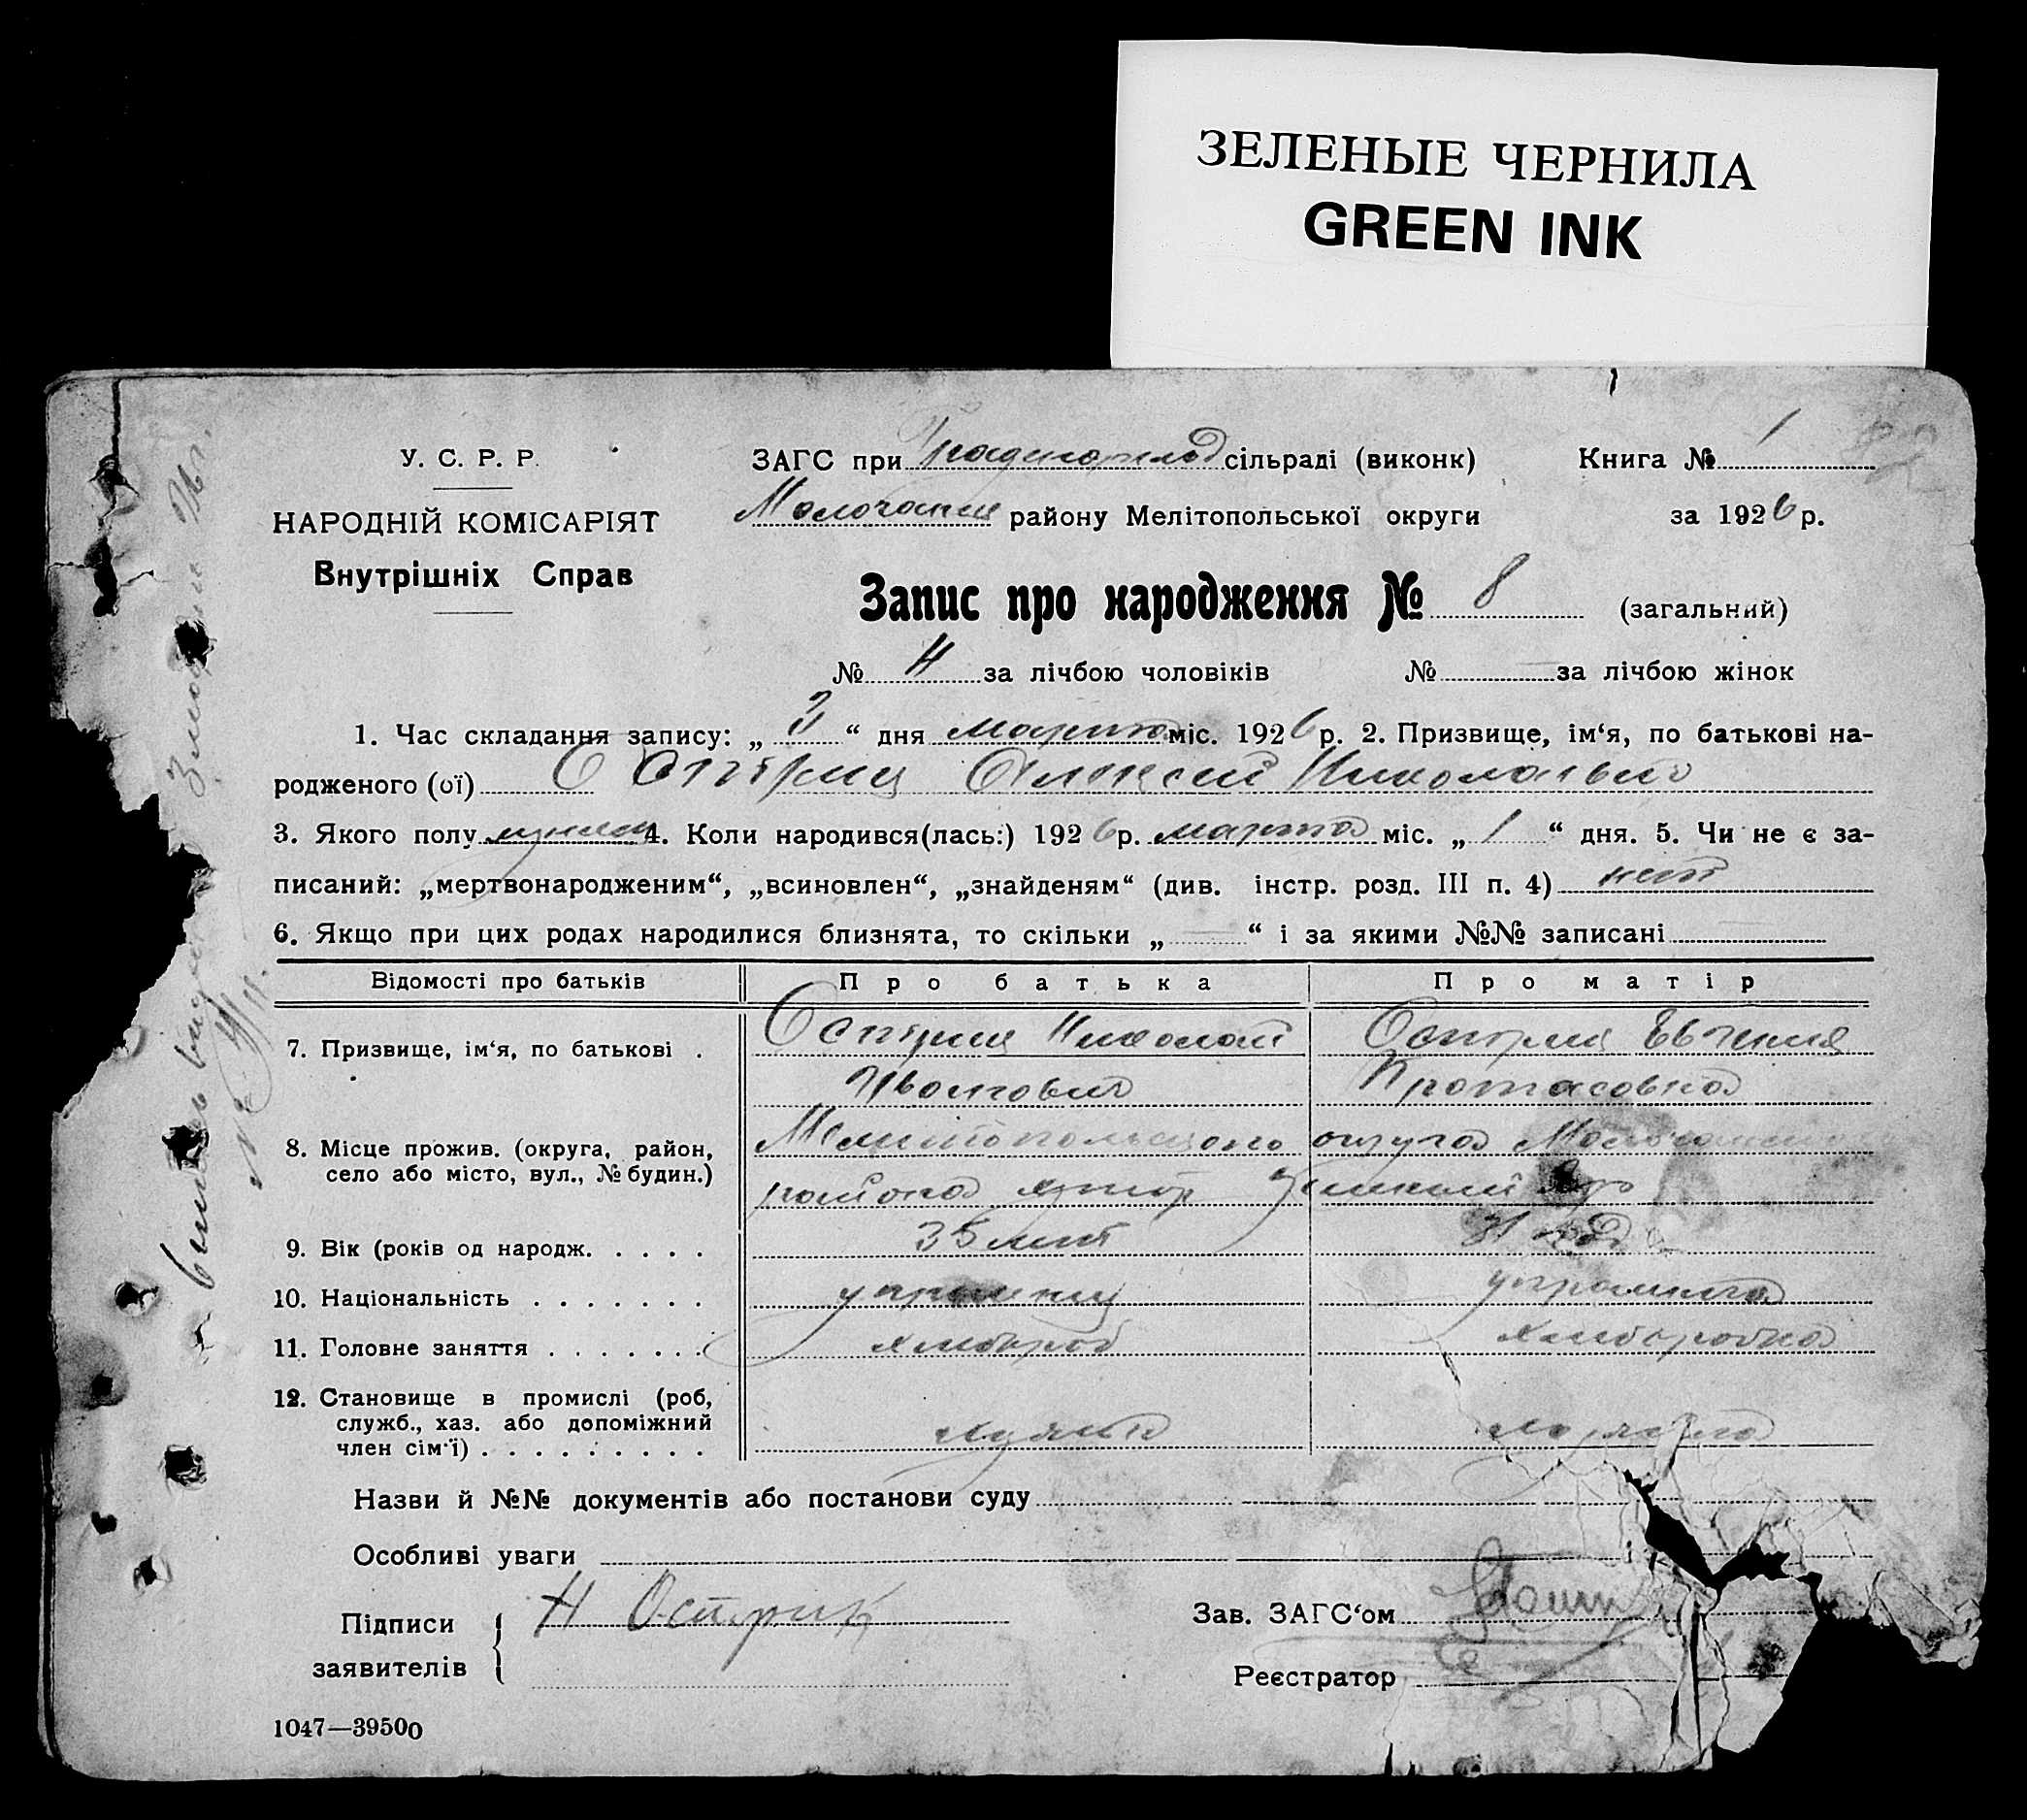 ЗЕЛЕНЫЕ ЧЕРНИЛА
GREEN INK
У. С. Р. Р.
НАРОДНІЙ КОМІСАРІЯТ
Внутрішніх Справ
ЗАГС при сільраді (виконк)
Книга № 1
района Мелітопольської округи
за 1926 р.
Запис про народження № 8 (загальний)
№ 4 за лічбою чоловіків № за лічбою жінок
1. Час складання запису: „ 3 “ дня марта міс. 1926 р. 2. Призвище, ім‘я, по батькові на-
родженого (ої) Острик Алексей Николаевич
3. Якого полу мужск 4. Коли народився(лась:) 1926 р. марта міс. „ 1 “ дня. 5. Чи не є за-
писаний: „мертвонародженим“, „всиновлен“, „знайденям“ (див. інстр. розд. III п. 4) нет
6. Якщо при цих родах народилися близнята, то скільки „ “ і за якими №№ записані
Відомості про батьків Про батька Про матір
7. Призвище, ім‘я, по батькові . Острик Николай Острик Евгения
Иванович Протасовна
8. Місце прожив. (округа, район, Мелитопольского округа
село або місто, вул., № будин.) района хутор
9. Вік (років од народж. . . . . 35 лет 31 год
10. Національність . . . . . . . украинец украинка
11. Головне заняття . . . . . . . хлебороб хлеборобка
12. Становище в промислі (роб,
служб., хаз. або допоміжний
член сім‘ї) . . . . . . . . . хозяин хозяйка
Назви й №№ документів або постанови суду
Особливі уваги
Підписи Н Острик
заявителів
Зав. ЗАГС‘ом
Реєстратор
1047—39500